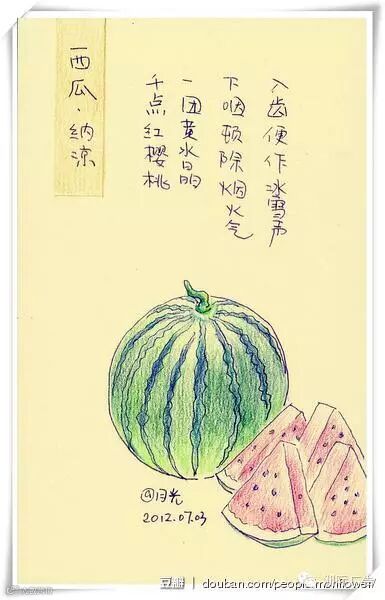 西瓜·纳凉
千点红樱桃
一团黄水晶
下咽顿除烟火气
入齿便作冰雪声
@月光
2012.07.03
豆瓣 douban.com/people